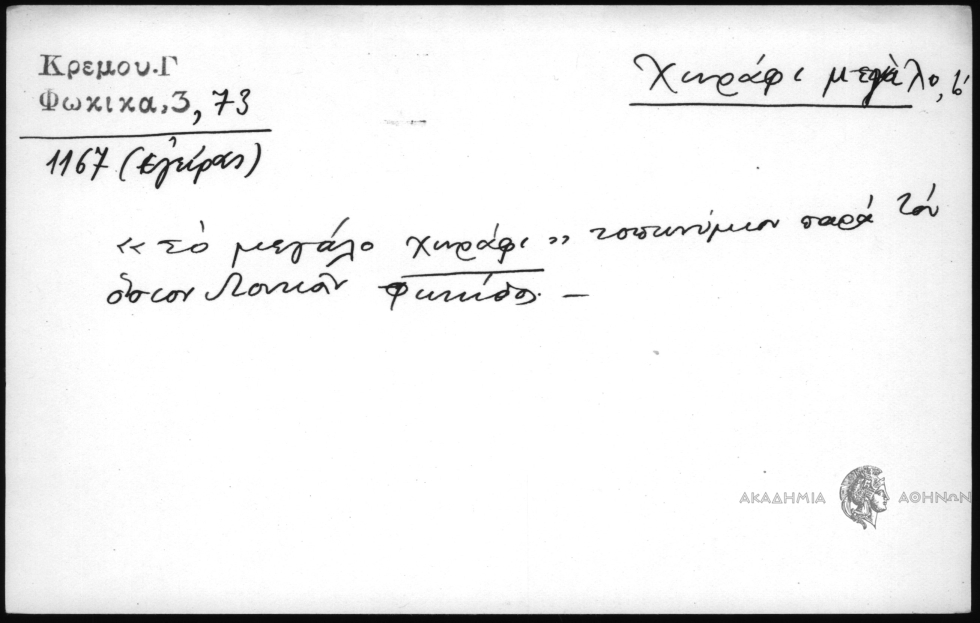 Κρεμου.Γ
Φωκικα,3, 73
1167 (ἐγείρας)
Χωράφι μεγάλο, τό
«τό μεγάλο χωράφι» τοπωνύμιον παρά τόν
ὅσιον Λουκᾶν Φωκίδος. –
ΑΚΑΔΗΜΙΑ ΑΘΗΝΩΝ